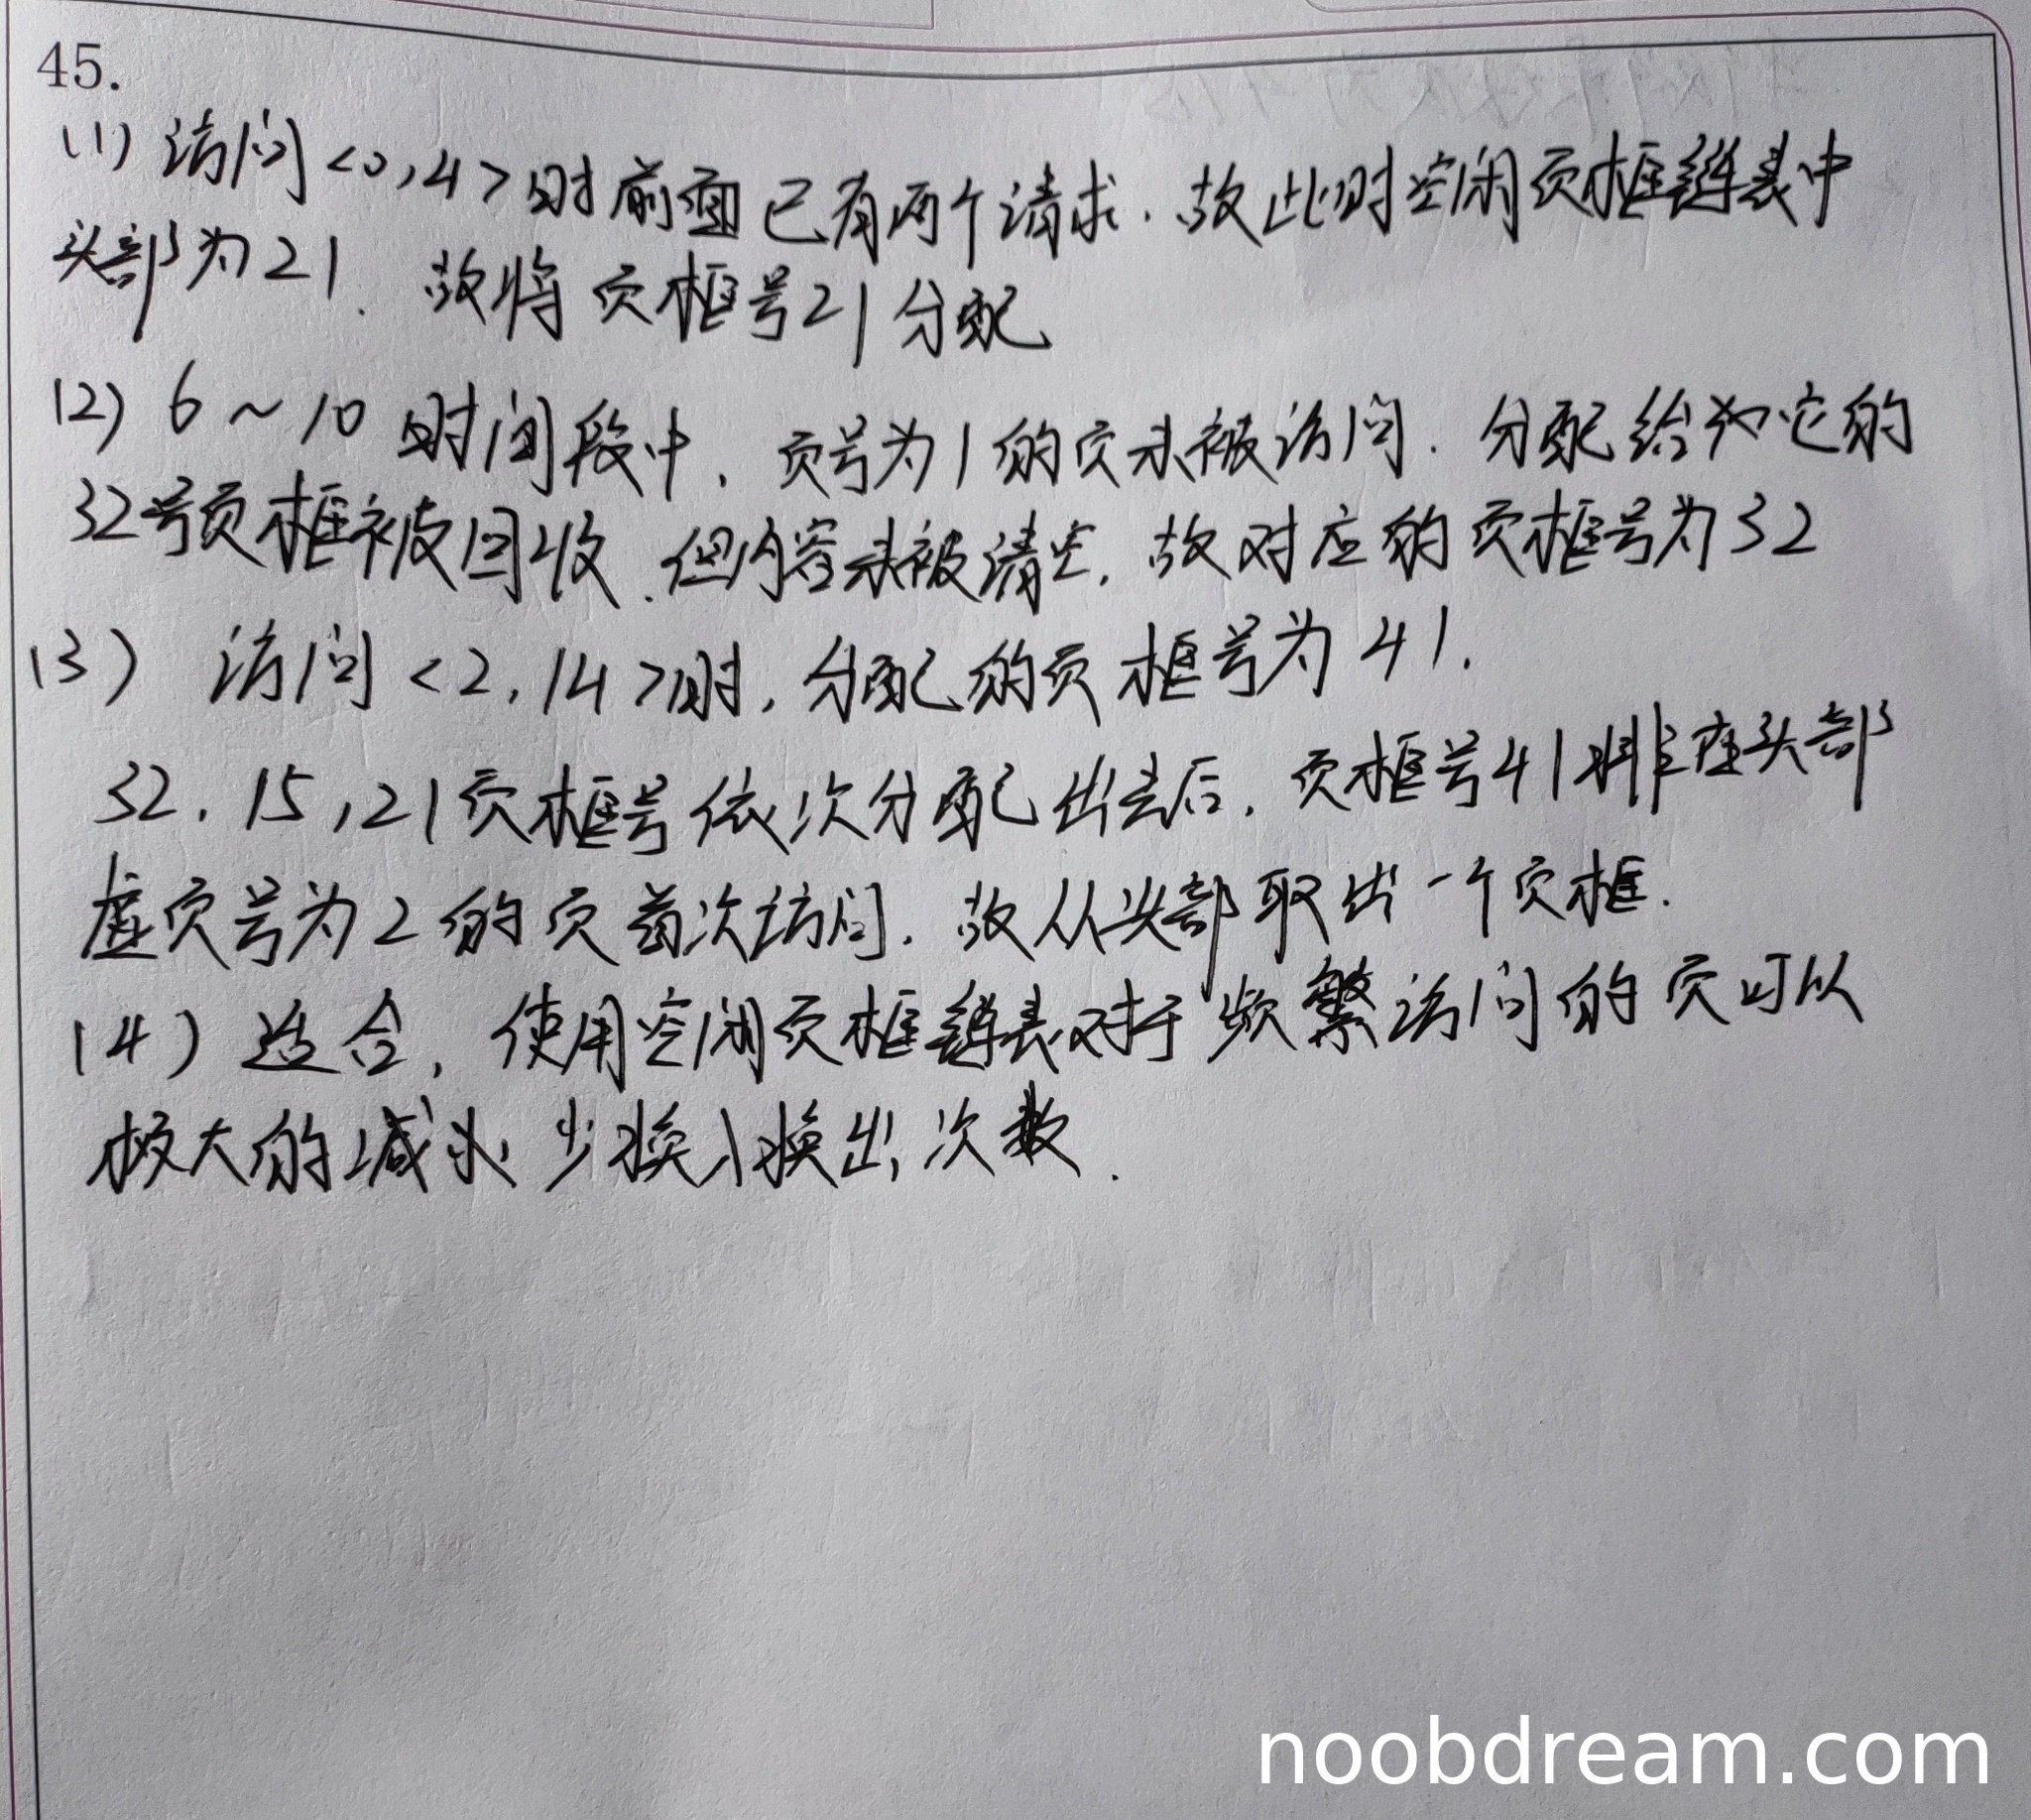 45.
(1) 访问<0,4>时前面已有两个请求.故此时空闲页框链表中
头部为21. 故将页框号21分配
(2) 6~10时间段中,页号为1的页未被访问.分配给它的
32号页框被回收.但内容未被清空,故对应的页框号为32
(3) 访问<2,14>时,分配的页框号为41.
32.15,21页框号依次分配出去后,页框号41排在头部
虚页号为2的页首次访问.故从头部取出一个页框.
(4) 适合,使用空闲页框链表对于频繁访问的页可以
极大的减少换入换出次数.
noobdream.com